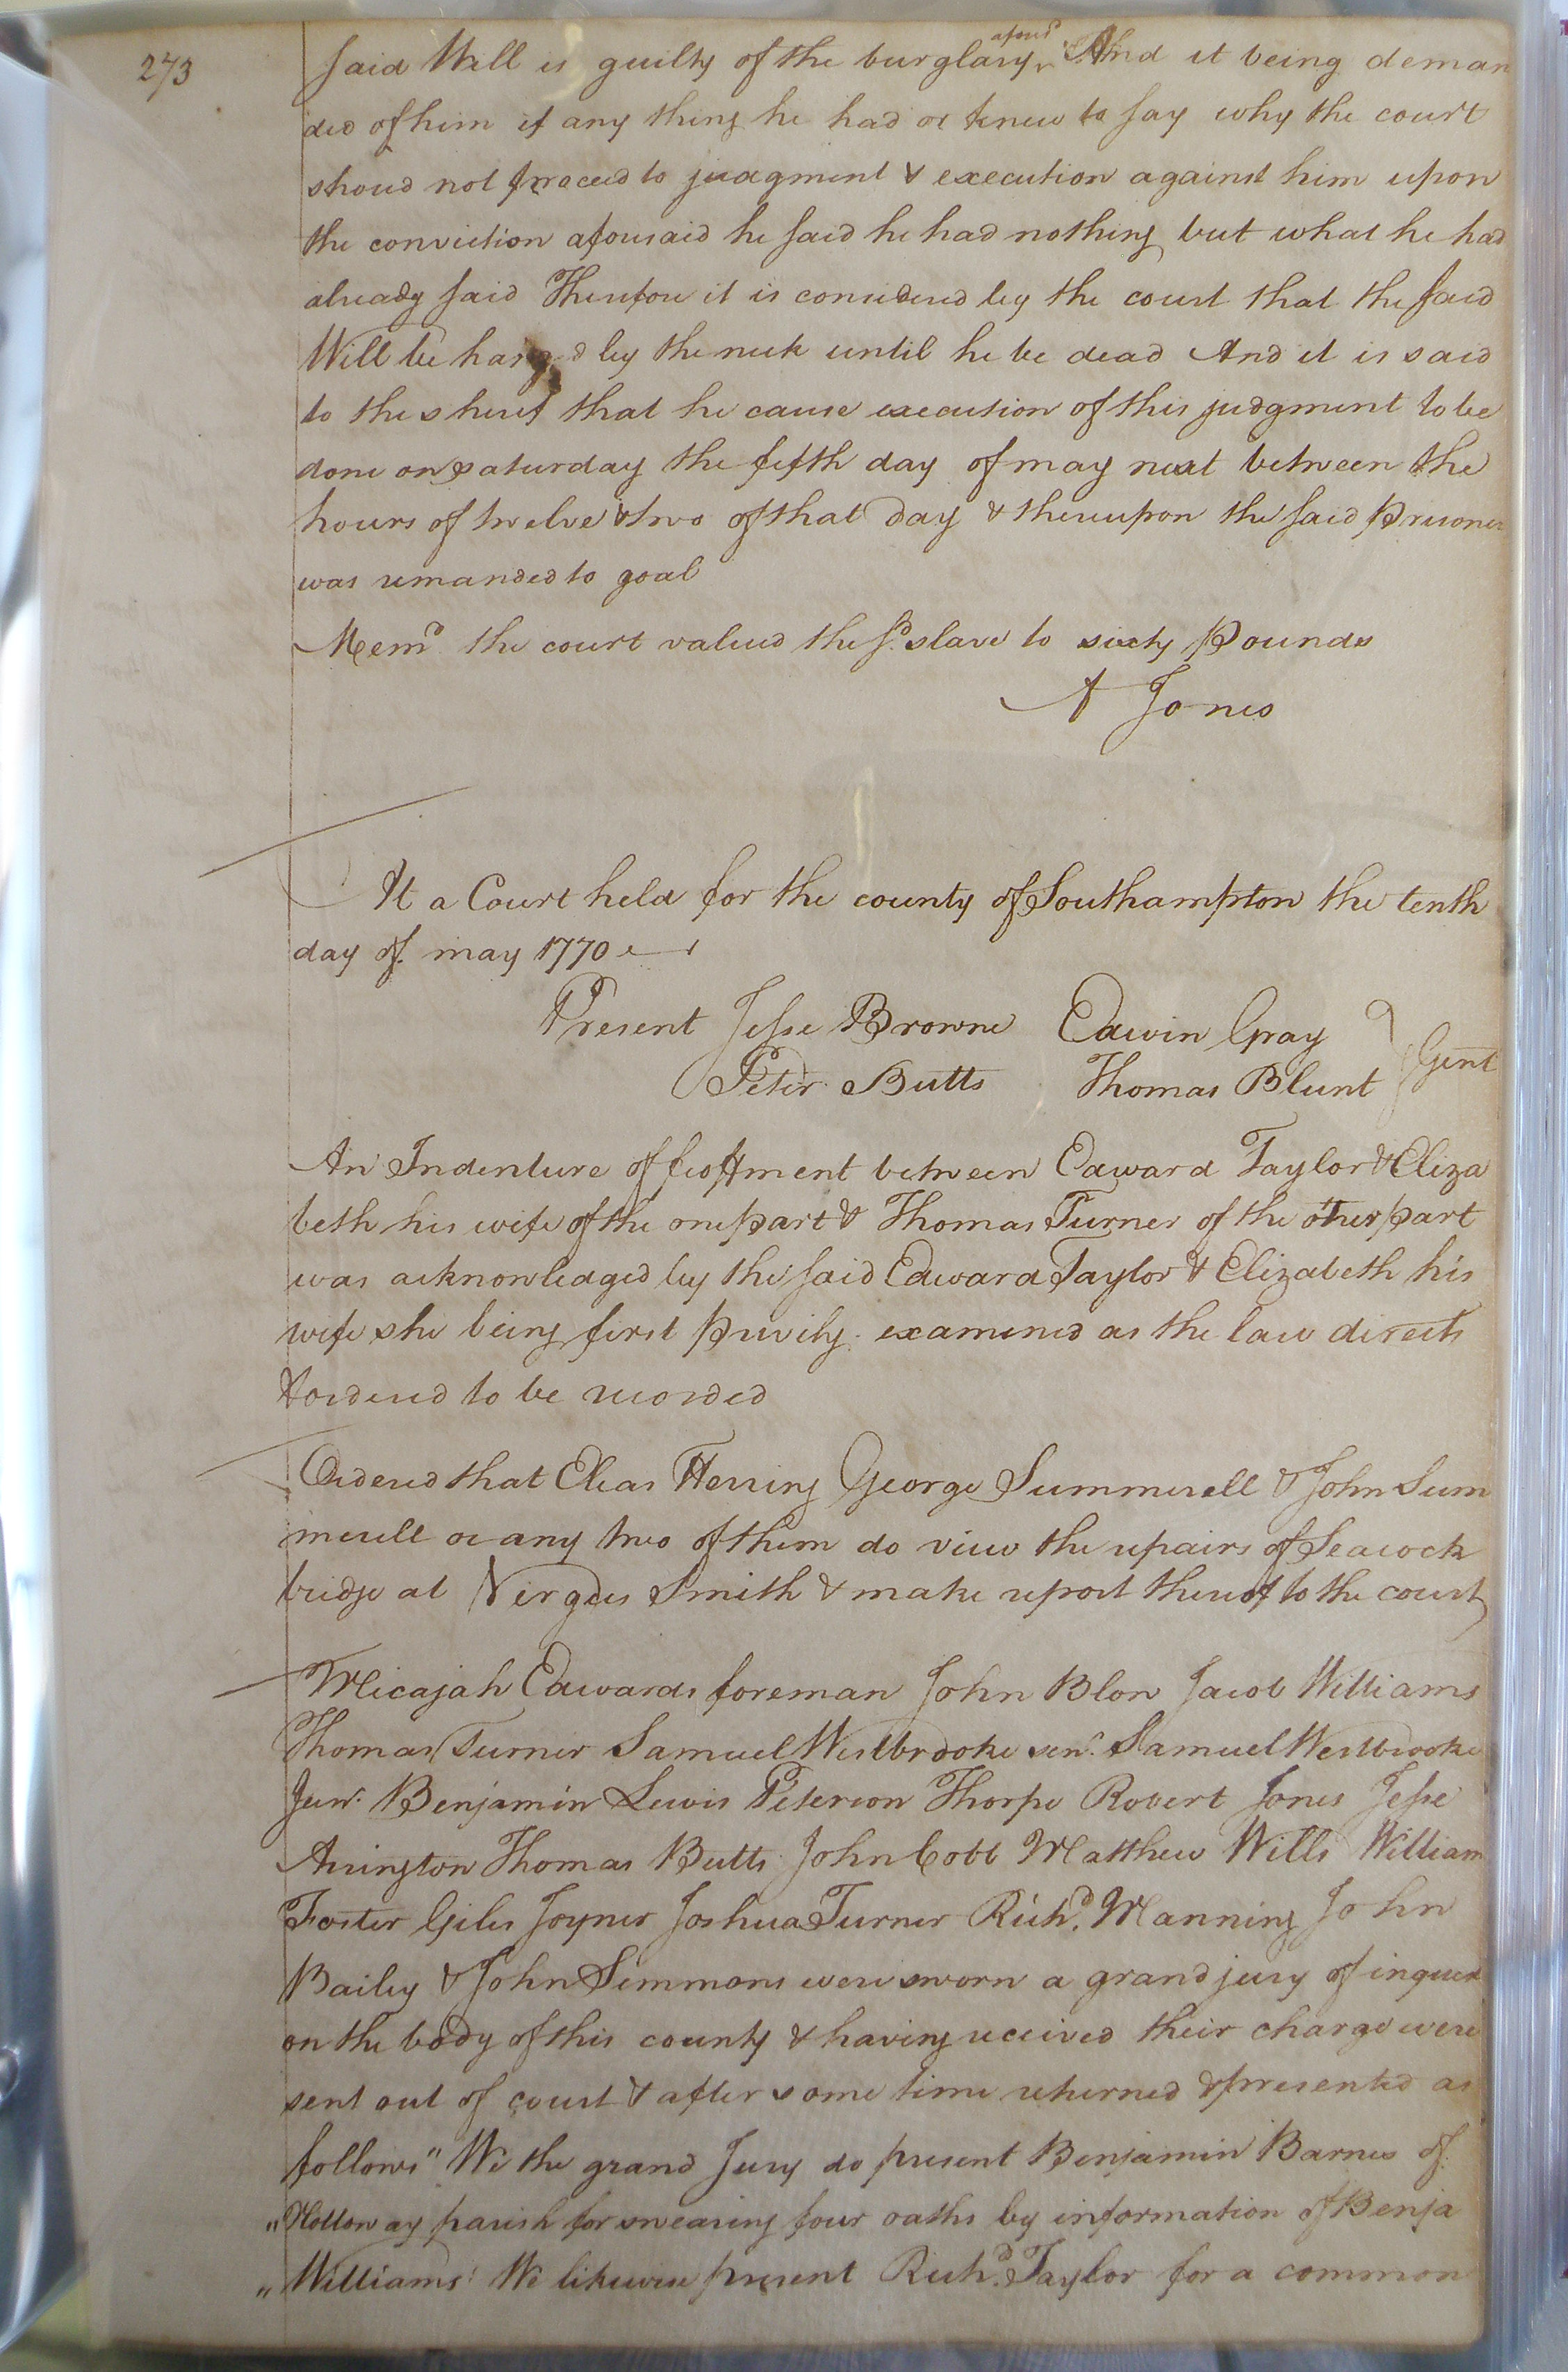 273
said Will is guilty of the burglary afors.d And it being deman
ded of him if any thing he had or knew to say why the court
shoud not proceed to judgment & execution against him upon
the conviction aforesaid he said he had nothing but what he had
already said Therefore it is considered by the court that the said
Will be hanged by the neck until he be dead And it is said
to the sheref that he cause execution of this judgment to be
done on saturday the fifth day of may next between the
hours of twelve & two of that day & thereupon the said prisoner
was remanded to goal
Mem.d the court valued the s.d slave to sixty pounds
A Jones
At a Court held for the county of Southampton the tenth
day of may 1770
Present Jesse Browne Edwin Gray
Peter Butts Thomas Blunt Gent
An Indenture of feoffment between Edward Taylor & Eliza
beth his wife of the one part & Thomas Turner of the other part
was acknowledged by the said Edward Taylor & Elizabeth his
wife she being first privily examined as the law directs
& ordered to be recorded
Ordered that Elias Herring George Summerell & John Sum
merell or any two of them do view the repairs of Seacock
bridge at Smith & make report thereof to the court
Micajah Edwards foreman John Blow Jacob Williams
Thomas Turner Samuel Westbrooke sen.r Samuel Westbrooke
Jun.r Benjamin Lewis Peterson Thorpe Robert Jones Jesse
Arrington Thomas Butts John Cobb Matthew Wills William
Foster Giles Joyner Joshua Turner Rich.d Manning John
Bailey & John Simmons were sworn a grand jury of inquest
on the body of this county & having received their charge were
sent out of court & after some time returned & presented as
follows "We the grand Jury do present Benjamin Barnes of
"Nottoway parish for swearing four oaths by information of Benja
"Williams We likewise present Rich.d Taylor for a common